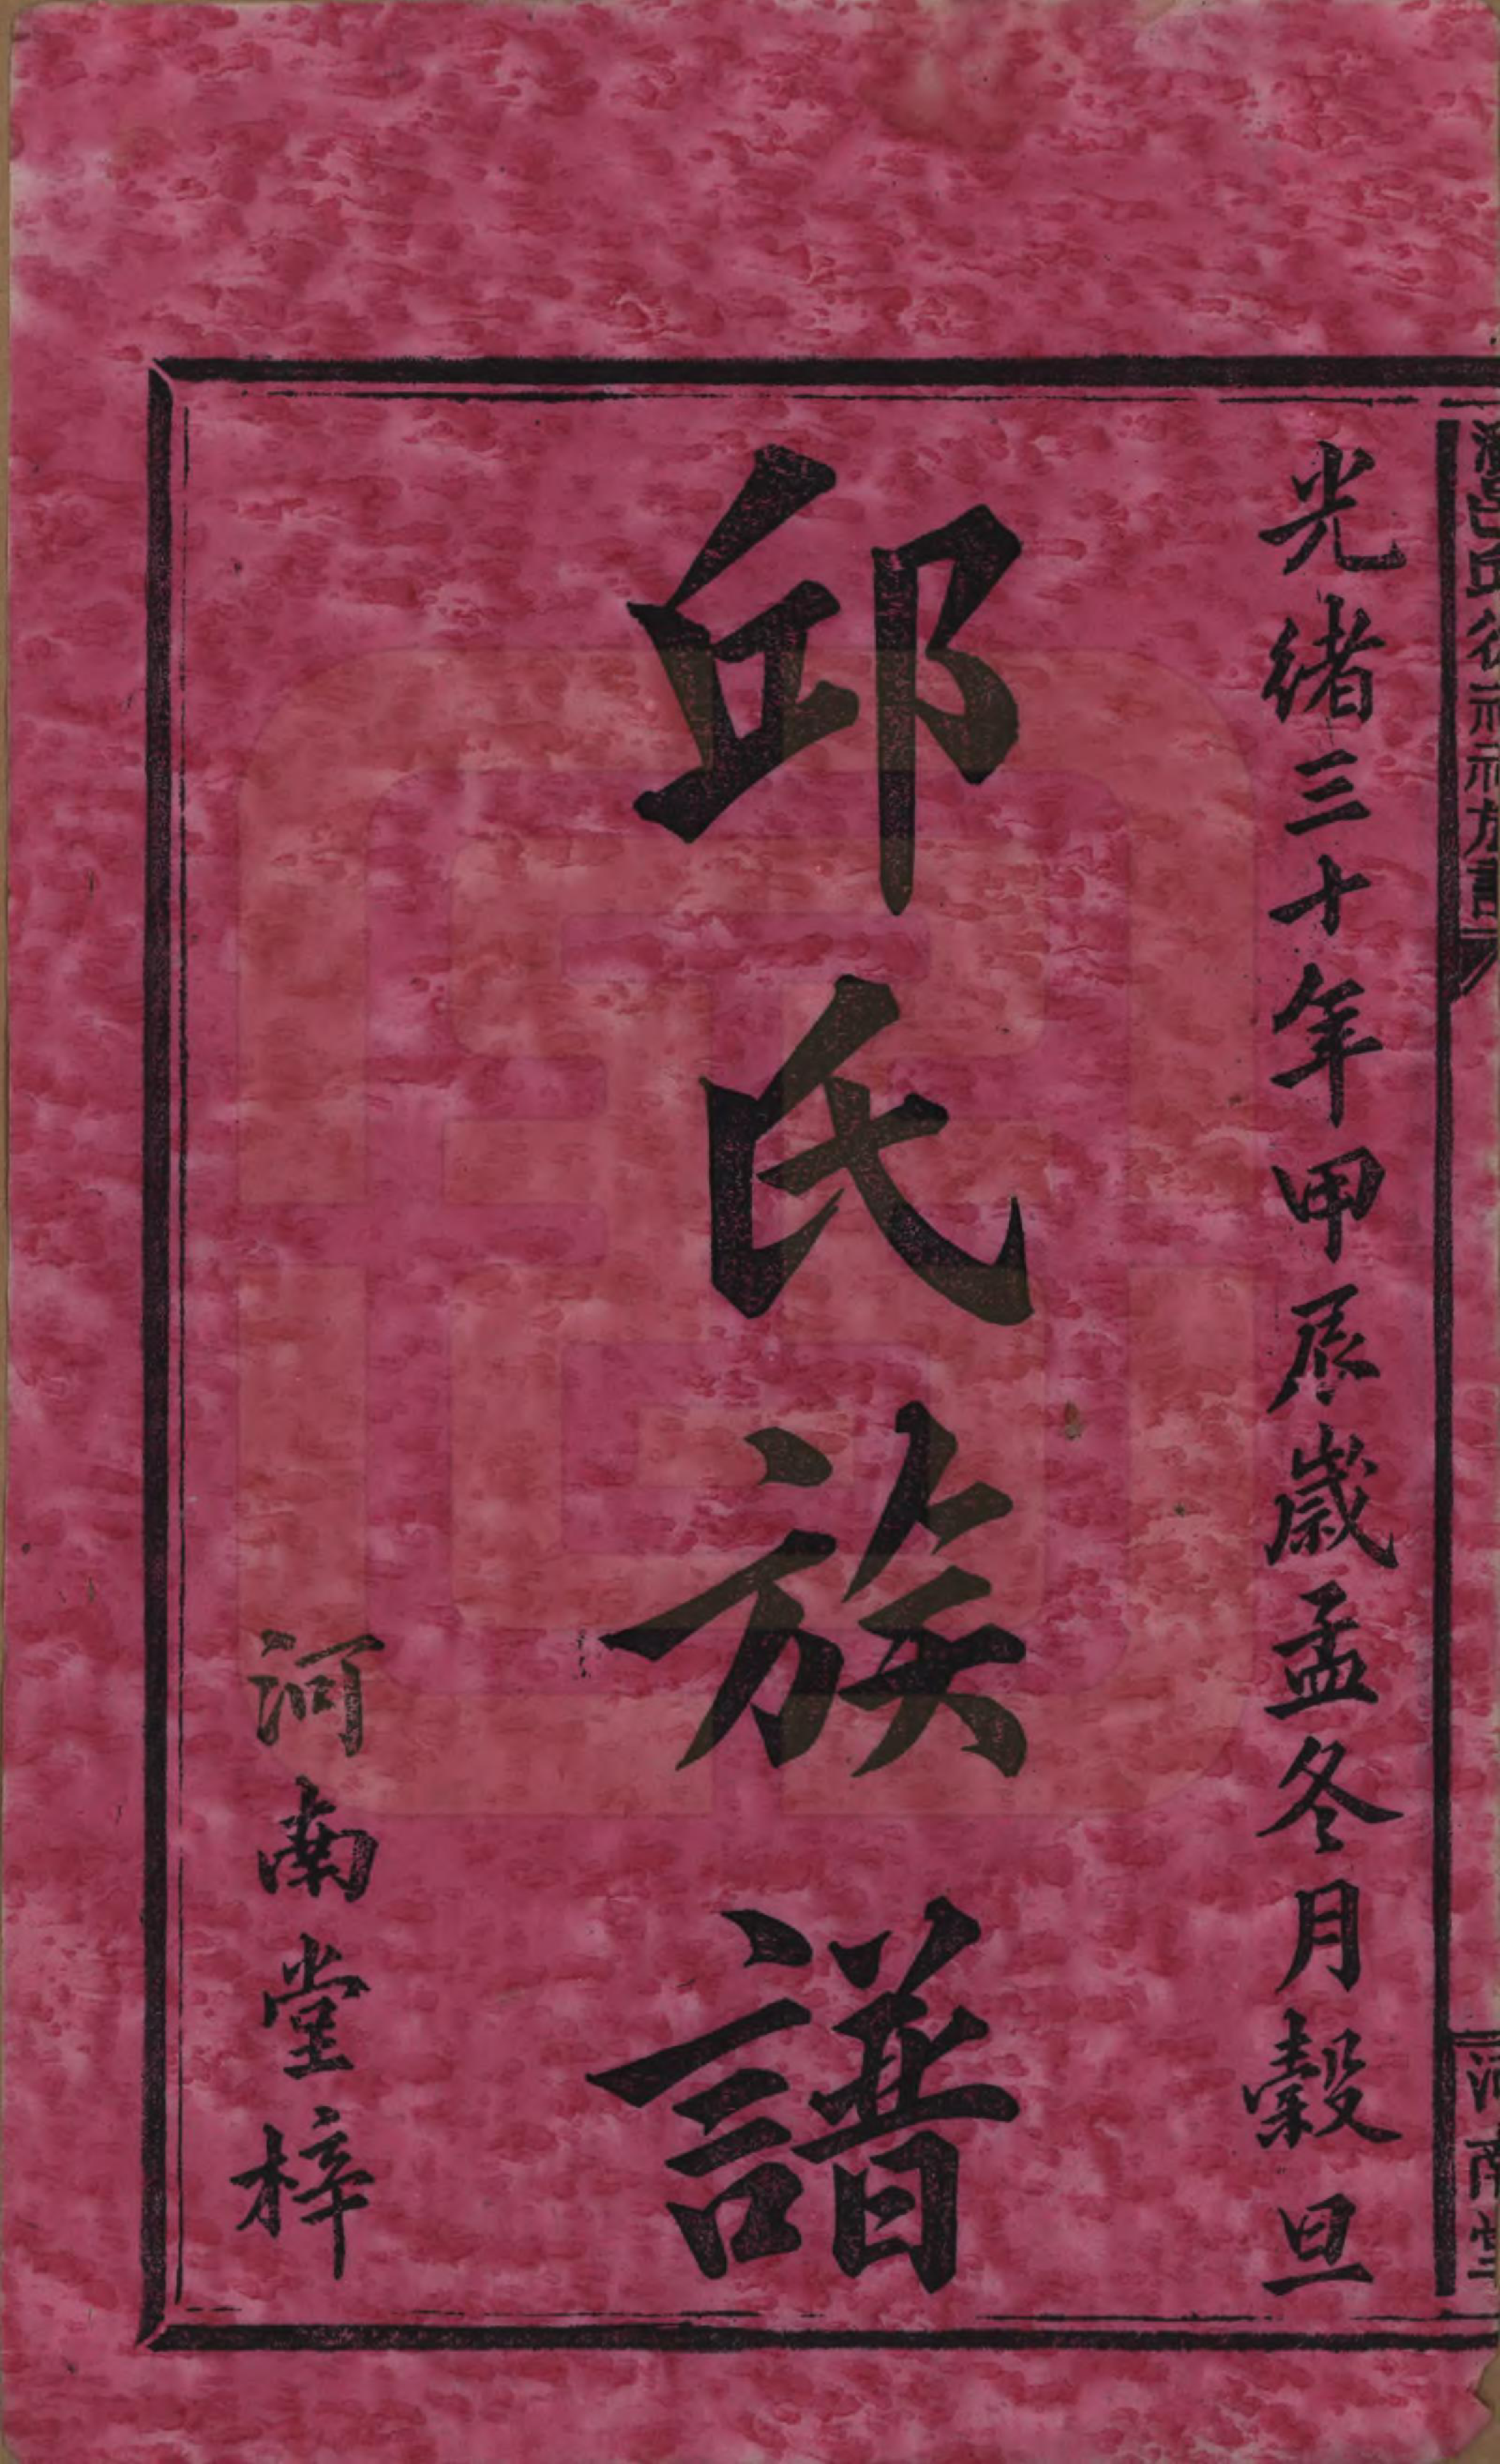 光緒三十年甲辰歲孟冬月穀旦
邱氏族譜
河南堂梓